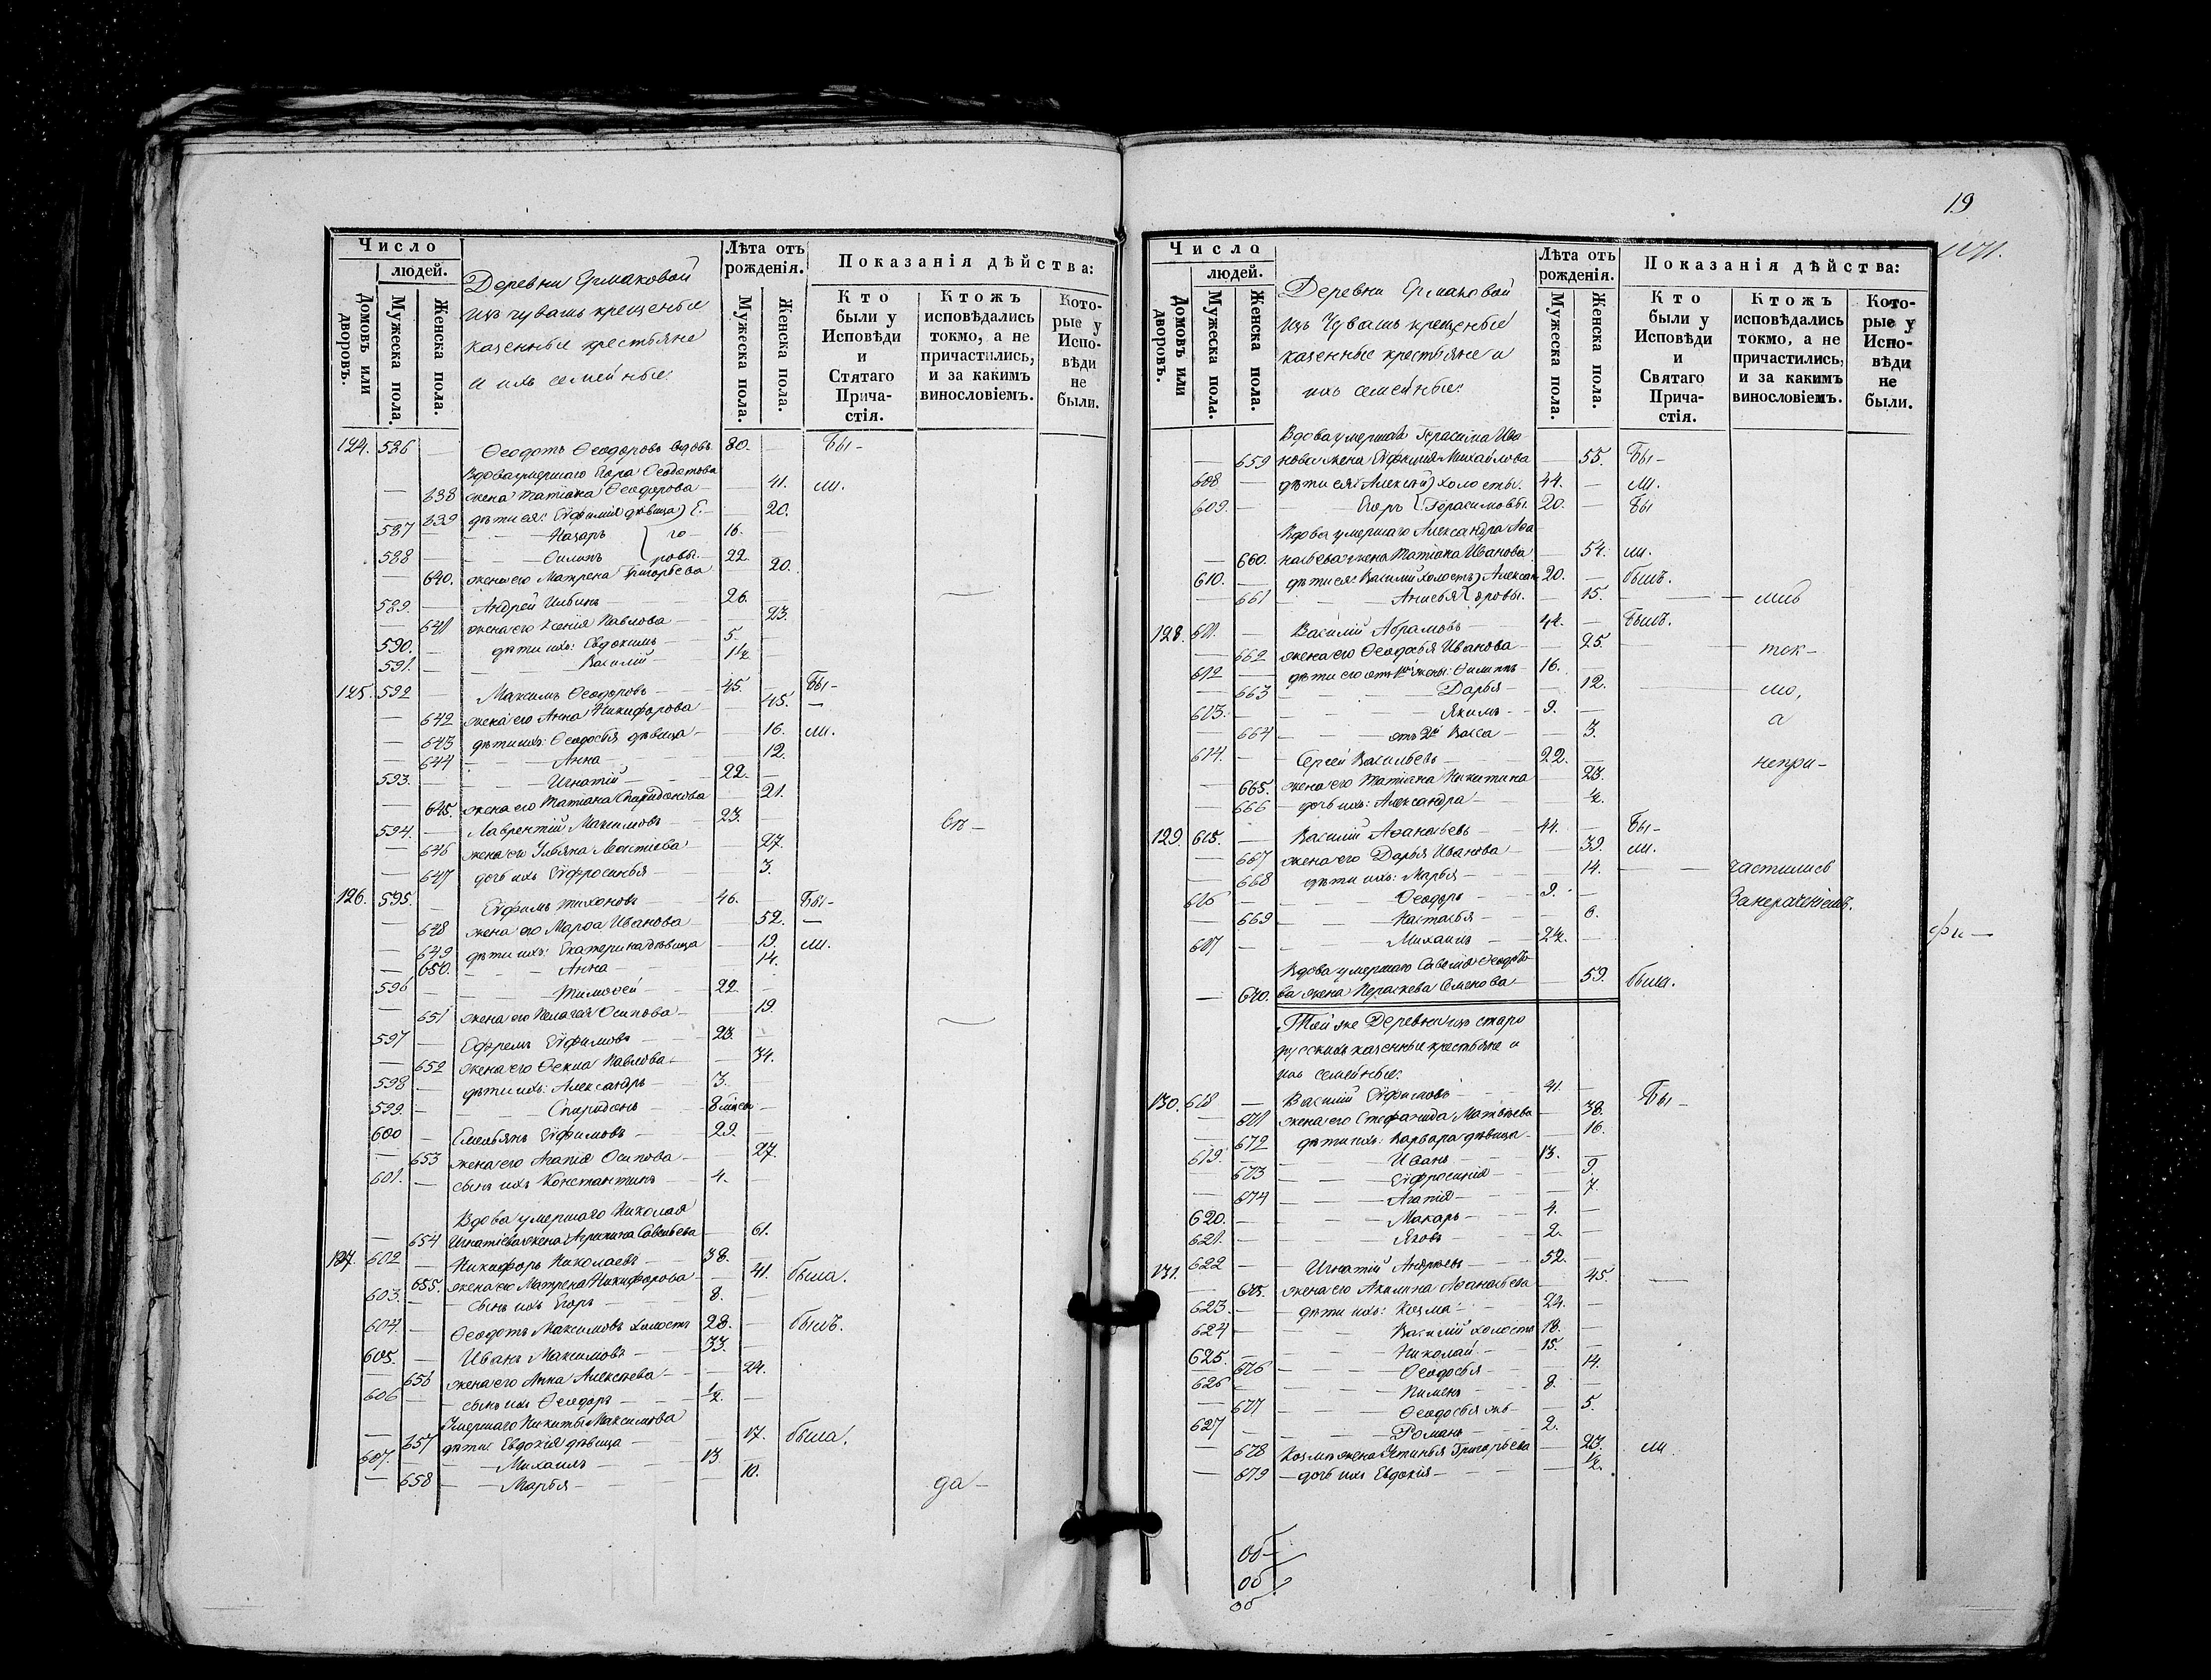 Число
людей.
Домовъ или дворовъ.
Мужеска пола.
Женска пола.
Деревни Ермаковой
изъ чувашъ крещеные
казенные крестьяне
и ихъ семейные:
Лѣта отъ рожденія.
Мужеска пола.
Женска пола.
Показанія дѣйства:
Кто были у Исповѣди и Стятаго Прича-стія.
Ктожъ исповѣдались токмо, а не причастились, и за какимъ винословіемъ.
Кото-рые у Испо-вѣди не были.
124. 586 — Ѳеодотъ Ѳеодоровъ вдовъ 80. — Бы-
Вдова умершаго Егора Ѳеодотова
— 638 жена Татіана Ѳеодорова — — 41. ли.
— 639 дѣти ея: Еѵфимія дѣвица) Е. — — 20.
587 — — — Назаръ } го — 16. —
588 — — — Филипъ } ровы. — 22. —
— 640. жена его Матрена Григорьева — 20.
589. — Андрей Ильинъ — 26. —
— 641 жена его Ксенія Павлова — — 23.
590. — дѣти ихъ: Евдокимъ — 5. —
591. — — — Василій — 1½ —
125. 592 — Максимъ Ѳеодоровъ — 45. — Бы-
— 642 жена его Анна Никифорова — 45. —
— 643 дѣти ихъ: Ѳеодосья дѣвица — — 16. ли.
— 644 — — Анна — — 12.
593. — — — Игнатій — 22. —
— 645. жена его Татіана Спиридонова — 21.
594. — Лаврентій Максимовъ — 23. — въ —
— 646 жена его Ульяна Леонтіева — — 27.
— 647 дочь ихъ Еѵфросинья — — 3.
126. 595. — Еѵфимъ Тихоновъ — 46. — Бы-
— 648 жена его Марѳа Иванова — 52. —
— 649 дѣти ихъ: Екатерина дѣвица — 19. ли.
— 650. — — Анна — — 14.
596 — — — Тимоѳей — 22. —
— 651 жена его Пелагея Осипова — — 19.
597 — Ефремъ Еѵфимовъ — 28. —
— 652 жена его Ѳекла Павлова — — 34.
598 — дѣти ихъ: Александръ — 3. —
599. — — — Спиридонъ — 8 мѣсец —
600 — Емельянъ Еѵфимовъ — 29. —
— 653 жена его Агапія Осипова — — 27.
601. — сынъ ихъ Константинъ — 4. —
Вдова умершаго Николая
— 654 Игнатіева жена Агрипина Савельева — 61.
127. 602 — Никифоръ Николаевъ — 38. —
— 655. жена его Матрена Никифорова — 41. была.
603. — сынъ ихъ Егоръ — 8. —
604. — Ѳеодотъ Максимовъ холостъ 28. — былъ.
605. — Иванъ Максимовъ — 33. —
— 656 жена его Анна Алексѣева — — 24.
606 — сынъ ихъ Ѳеодоръ — ½. —
Умершаго Никиты Максимова
— 657 дѣти: Евдокія дѣвица — — 17. была.
607. — — — Михаилъ — 13 —
— 658 — — Марья — — 10. да —
19
Число
людей.
Домовъ или дворовъ.
Мужеска пола.
Женска пола.
Деревни Ермаковой
изъ Чувашъ крещеные
казенные крестьяне и
ихъ семейные:
Лѣта отъ рожденія.
Мужеска пола.
Женска пола.
Показанія дѣйства:
Кто были у Исповѣди и Святаго Прича-стія.
Ктожъ исповѣдались токмо, а не причастились, и за какимъ винословіемъ.
Кото-рые у Испо-вѣди не были.
Вдова умершаго Герасима Ива
— 659 нова жена Еѵфимія Михайлова — 55. Бы-
608 — дѣти ея: Алексѣй) холосты. 44. — ли.
609. — — Егоръ { Герасимовы. 20. — Бы
Вдова умершаго Александра Аѳа
— 660. насьева жена Татіана Иванова — 54. ли.
610. — дѣти ея: Василій холостъ) Алексан- 20. — былъ.
— 661 — — Анисья { дровы. — 15. — мит
128. 611. — Василій Абрамовъ — 44. — Былъ.
— 662 жена его Ѳеодосья Иванова — — 25. — ток —
612 — дѣти его отъ 1й жены: Филиппъ — 16. —
— 663 — — Дарья — — 12. — мо,
613. — — — Якимъ — 9. — а
— 664 — — отъ 2й Васса — — 3.
614. — Сергей Васильевъ — 22. — непри —
— 665. жена его Татіана Никитина 23.
— 666 — дочь ихъ: Александра — — ½.
129. 615. — Василій Аѳанасьевъ — 44. — Бы-
— 667 жена его Дарья Иванова — — 39. ли.
— 668 дѣти ихъ: Марья — — 14. — частились
616 — — — Ѳеодоръ — 9. — Занераченіемъ.
— 669 — — Настасья — — 6.
617 — — — Михаилъ — 24. —
фи —
Вдова умершаго Савелія Ѳеодоро
— 670. ва жена Параскева Семенова — 59. была.
Той же Деревни изъ старо
русскихъ казенные крестьяне и
ихъ семейные:
130. 618 — Василій Еѵфимовъ — 41 — Бы —
— 671 жена его Стефанида Матвѣева — 38.
— 672 дѣти ихъ: Варвара дѣвица — — 16.
619. — — — Иванъ — 13. —
— 673 — — Еѵфросинія — — 9.
— 674 — — Агапія — — 7.
620. — — — Макаръ — 4. —
621. — — — Яковъ — 2. —
131. 622 — Игнатій Андреевъ — 52. —
— 675. жена его Акилина Аѳанасьева — 45. —
623. — дѣти ихъ: Козма — 24. —
624 — — Василій холостъ 18. —
625. — — — Николай — 15. —
— 676 — — Ѳеодосья — — 14.
626 — — — Пименъ — 8. —
— 677 — — Ѳеодосья жъ — — 5.
627 — — — Романъ — 2. —
— 678 Козмы жена Устинья Григорьева — 23. ли
— 679 — дочь ихъ Евдокія — — ½.
об
об
об